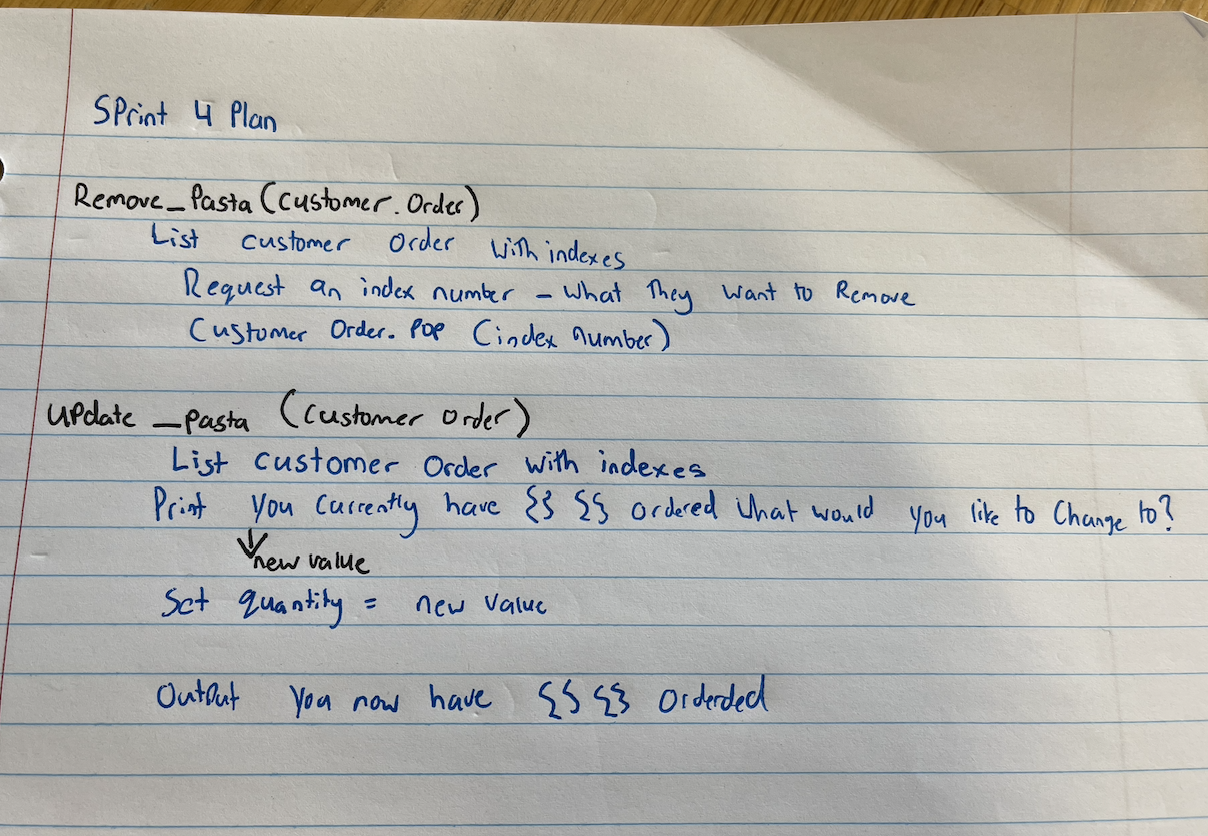 SPrint 4 Plan
Remove_Pasta (customer.Order)
List customer order with indexes
Request an index number - what They want to Remove
Customer Order. Pop (index number)
update_pasta (customer order)
List customer Order with indexes
Print you currently have {} {} ordered what would you like to Change to?
new value
Set quantity = new value
OutPut you now have {} {} Orderded